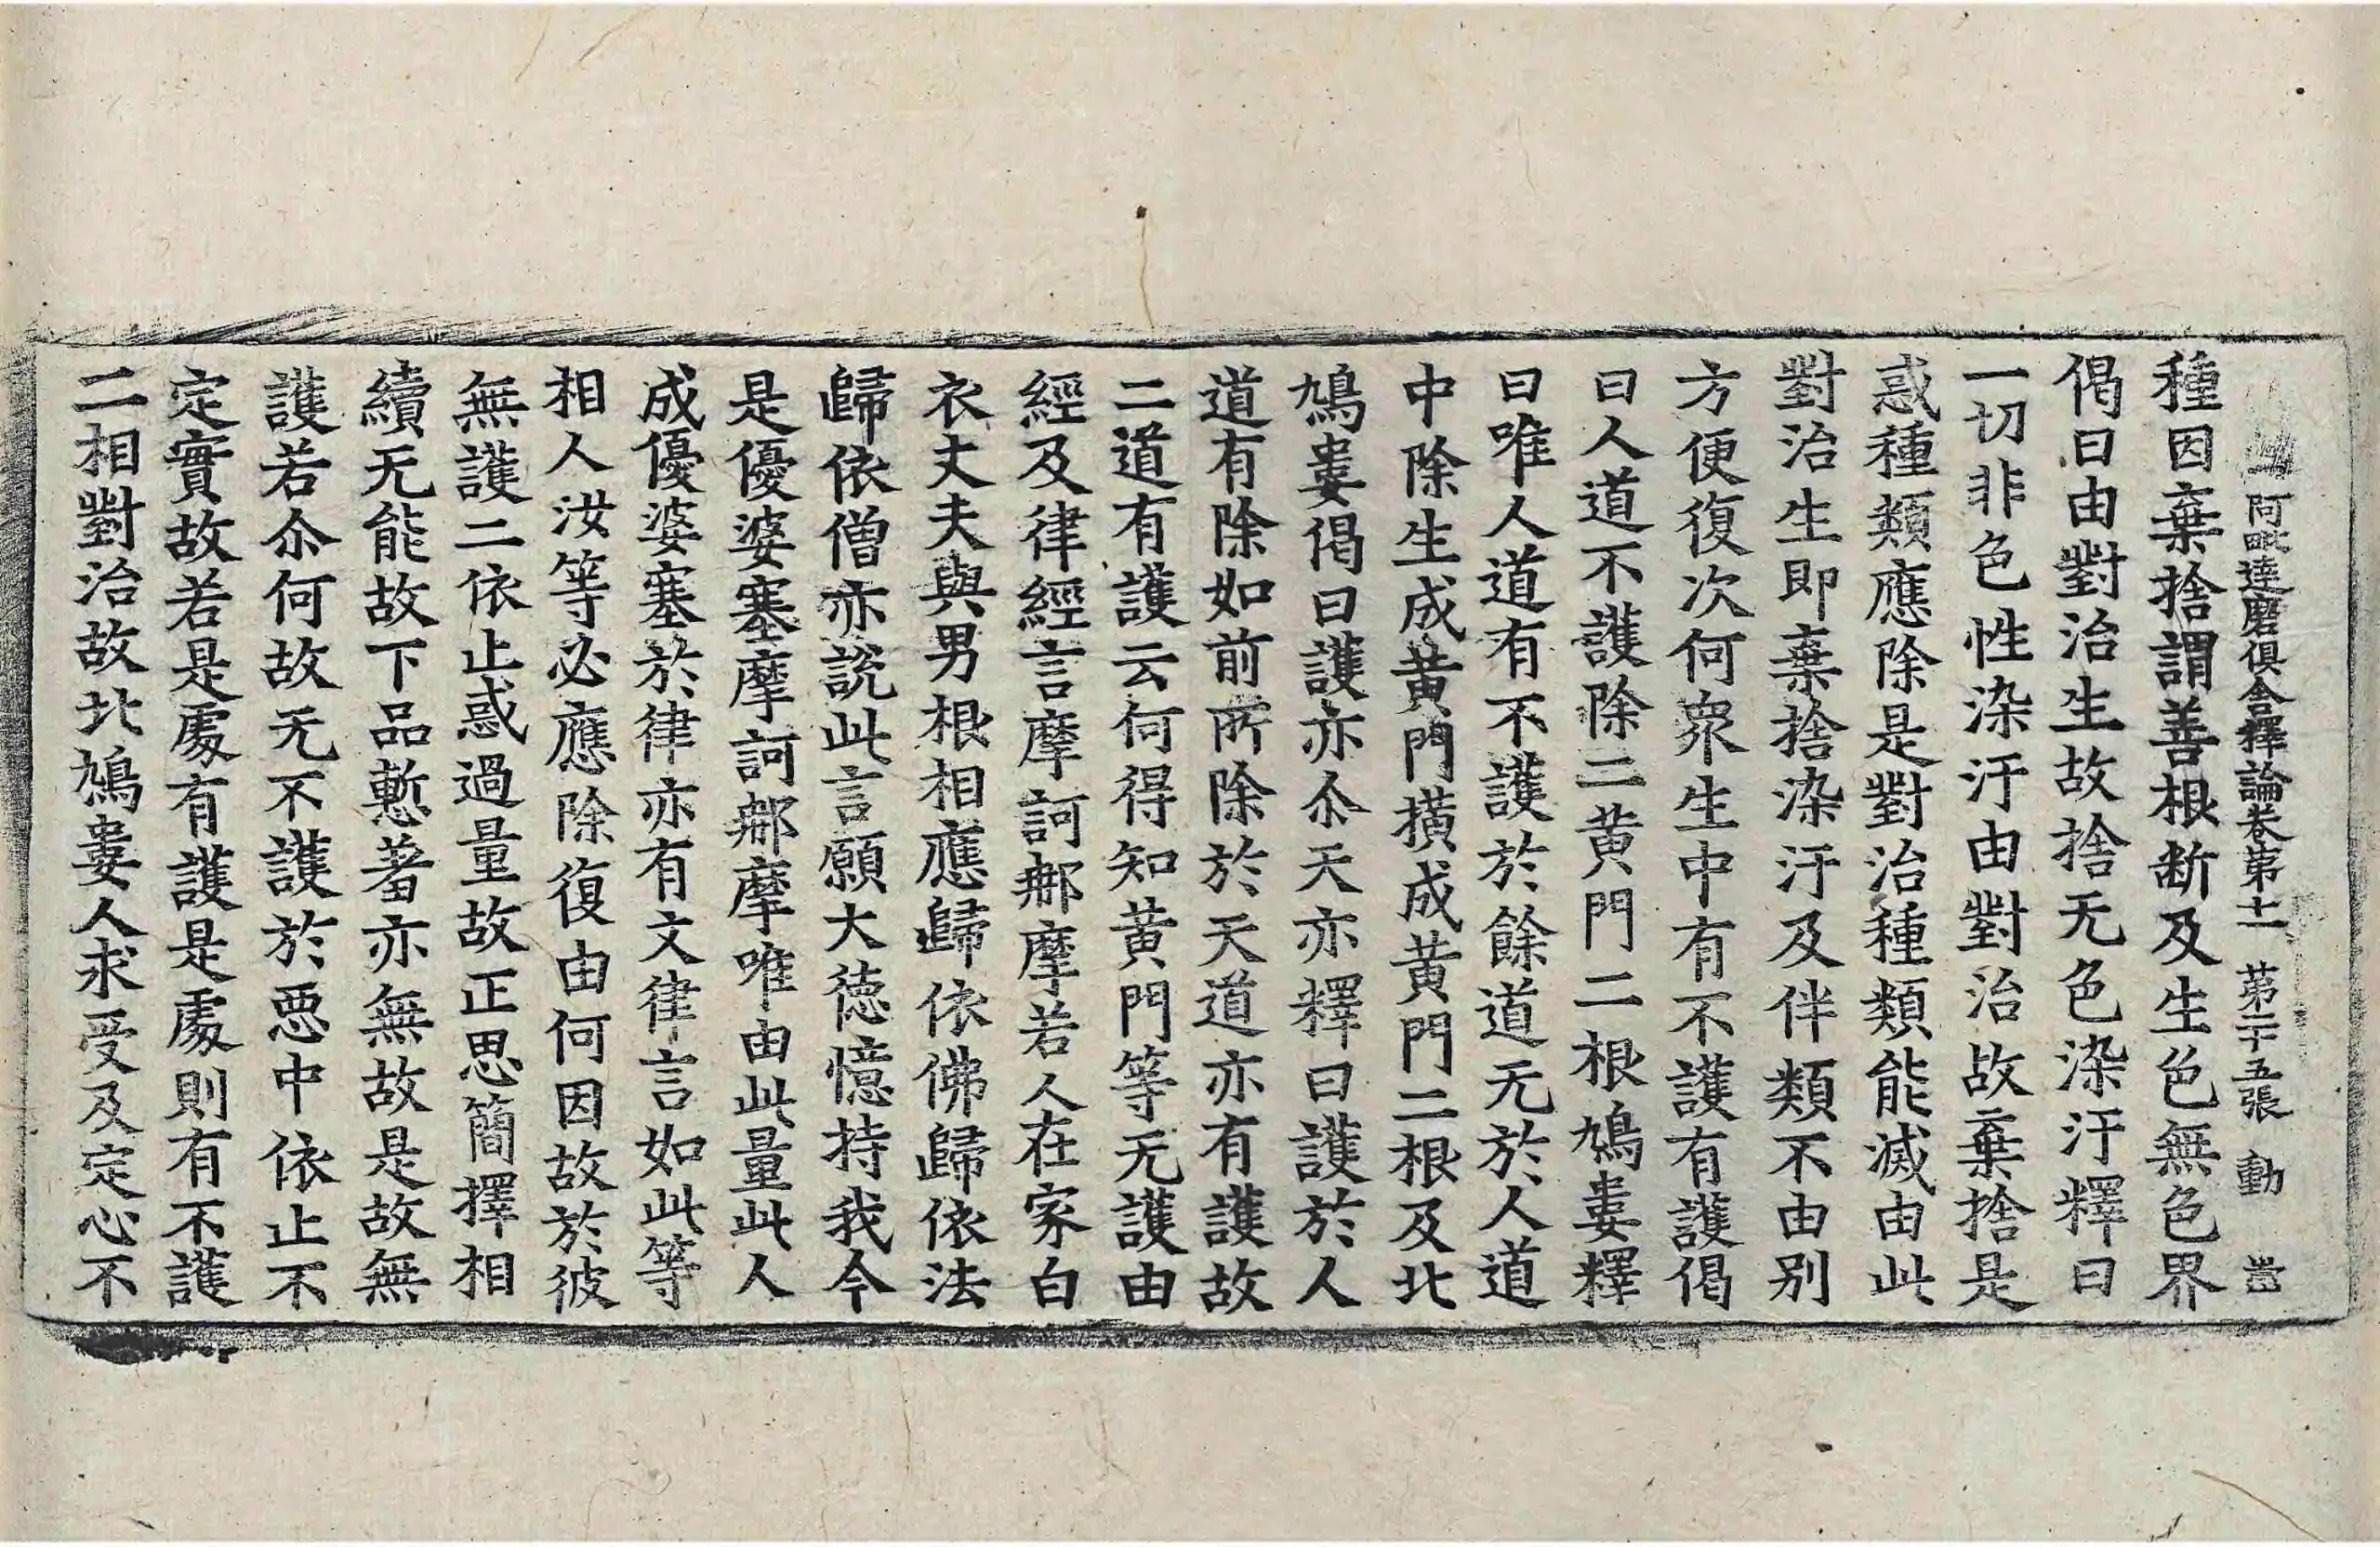 阿毗達磨俱舍釋論卷第十一　第二十五張　動
種因棄捨謂善根断及生色無色界
偈曰由對治生故捨无色染汙釋曰
一切非色性染汙由對治故棄捨是
惑種類應除是對治種類能滅由此
對治生即棄捨染汙及伴類不由别
方便復次何衆生中有不護有護偈
曰人道不護除二黄門二根鳩婁釋
曰唯人道有不護於餘道无於人道
中除生成黄門撗成黄門二根及北
鳩婁偈曰護亦尒天亦釋曰護於人
道有除如前所除於天道亦有護故
二道有護云何得知黄門等无護由
經及律經言摩訶𨚗摩若人在家白
衣丈夫與男根相應歸依佛歸依法
歸依僧亦說此言願大德憶持我今
是優婆塞摩訶𨚗摩唯由此量此人
成優婆塞於律亦有文律言如此等
相人汝等必應除復由何因故於彼
無護二依止惑過量故正思簡擇相
續无能故下品慙羞亦無故是故無
護若尒何故无不護於惡中依止不
定實故若是處有護是處則有不護
二相對治故北鳩婁人求受及定心不